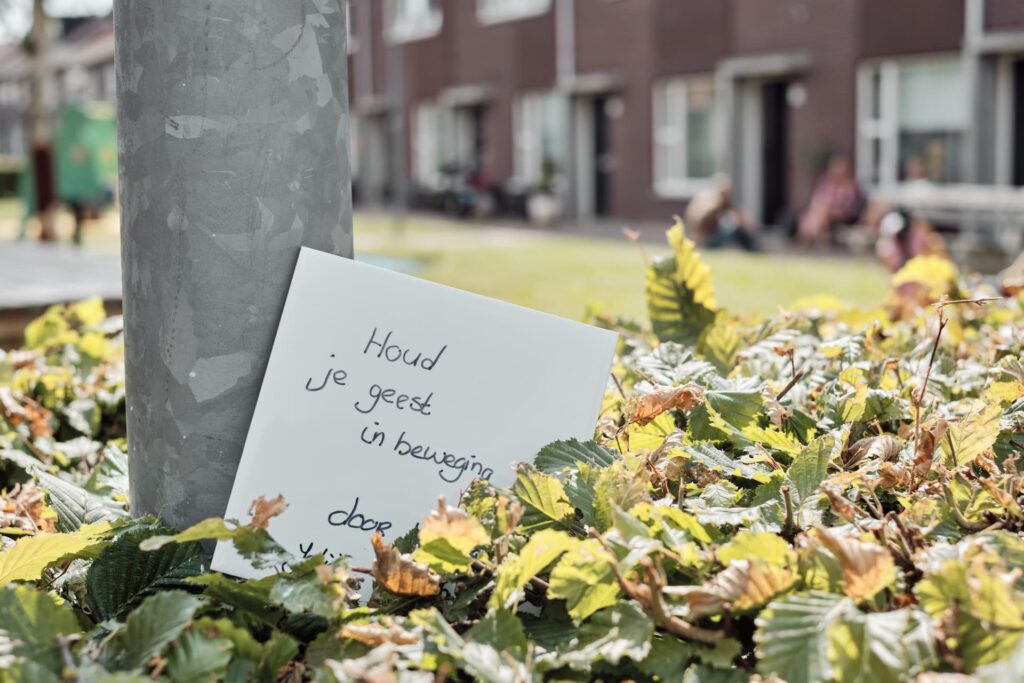 Houd
je geest
in beweging
door